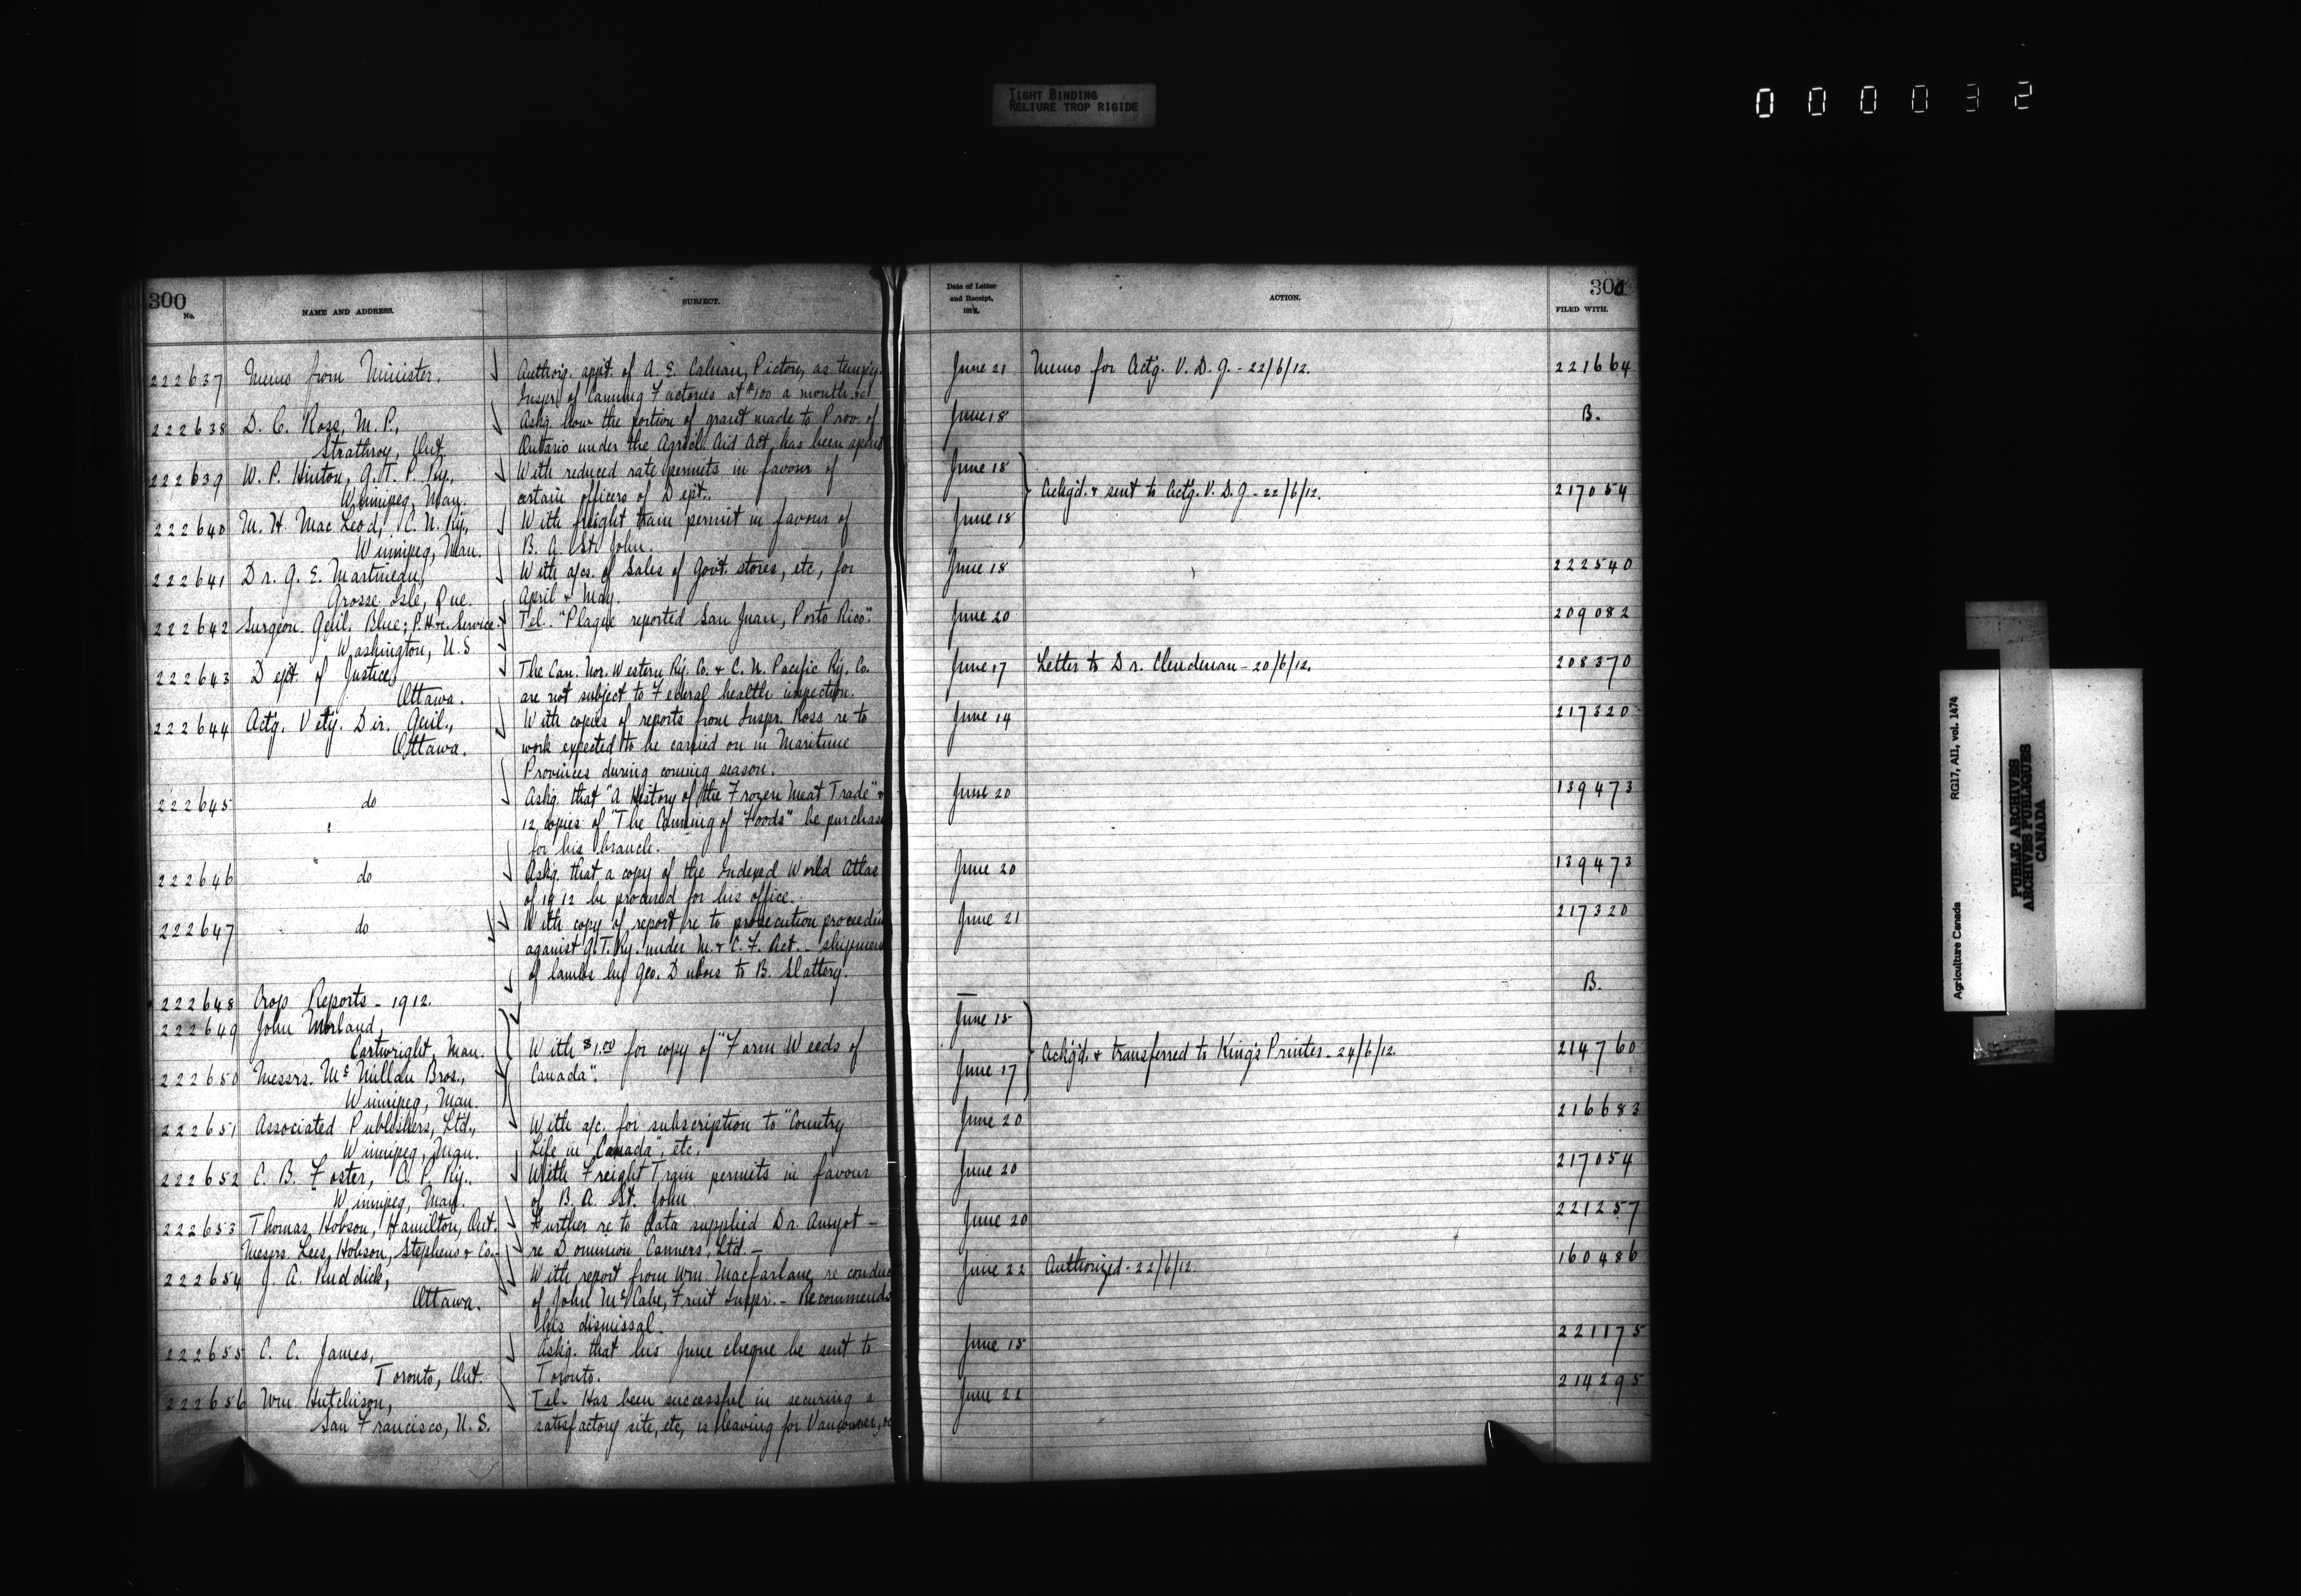 TIGHT BINDING
RELIURE TROP RIGIDE
000032
300
No.
NAME AND ADDRESS.
SUBJECT.
Date of Letter
and Receipt,
1912.
ACTION.
300
FILED WITH.
222637 Memo from Minister. Authorig. appt. of A. E. Calnan, Picton, as temp'y. June 21 Memo for Act'g. V. D. G. - 22/6/12. 221664
Inspr. of Canning Factories at $100 a month. &c
222638 D. C. Ross, M. P., Askg. how the portion of grant made to Prov. of June 18 B.
Strathroy, Ont. Ontario under the Agricl. Aid Act, has been spent
222639 W. P. Hinton, G. T. P. Ry., With reduced rate permits in favour of June 18
Winnipeg, Man. certain officers of Dept. Ackg'd. & sent to Act'g. V. D. G - 22/6/12. 217054
222640 M. H. MacLeod, C. N. Ry., With freight train permit in favour of June 18
Winnipeg, Man. B. A. St. John.
222641 Dr. G. E. Martineau, With a/cs. of Sales of Govt. stores, etc, for June 18 222540
Grosse Isle, Que. April & May.
222642 Surgeon. Genl. Blue; P. H. &c. Service. Tel. "Plague reported San Juan, Porto Rico". June 20 209082
Washington, U.S
222643 Dept. of Justice, The Can. Nor. Western Ry. Co. & C. N. Pacific Ry. Co. June 17 Letter to Dr. Clendenan - 20/6/12. 208370
Ottawa. are not subject to Federal health inspection.
222644 Act'g. Vet'y. Dir. Genl., With copies of reports from Inspr. Ross re to June 14 217320
Ottawa. work expected to be carried on in Maritime
Provinces during coming season.
222645 do Askg. that "A History of the Frozen Meat Trade" & June 20 139473
12 copies of "The Canning of Foods" be purchase
for his branch.
222646 do Askg. that a copy of the Indexed World Atlas June 20 139473
of 1912 be procured for his office.
222647 do With copy of report re to prosecution proceedin June 21 217320
against G. T. Ry. under M. & C. F. Act. - shipment
of lambs by Geo. Dubois to B. Slattery.
222648 Crop Reports - 1912. — B.
222649 John Morland, June 15
Cartwright, Man. With $1.00 for copy of "Farm Weeds of Ackg'd. & transferred to King's Printer - 24/6/12. 214760
222650 Messrs. McMillan Bros., Canada". June 17
Winnipeg, Man.
222651 Associated Publishers, Ltd., With a/c. for subscription to "Country June 20 216683
Winnipeg, Man. Life in Canada", etc.
222652 C. B. Foster, C. P. Ry., With Freight Train permits in favour June 20 217054
Winnipeg, Man. of B. A. St. John
222653 Thomas Hobson, Hamilton, Ont. Further re to data supplied Dr. Amyot - June 20 221257
Messrs. Lees, Hobson, Stephens & Co. re Dominion Canners, Ltd. -
222654 J. A. Ruddick, With report from Wm. Macfarlane re conduc June 22 Authorized - 22/6/12. 160486
Ottawa. of John McCabe, Fruit Inspr. - Recommends
his dismissal.
222655 C. C. James, Askg. that his June cheque be sent to June 15 221175
Toronto, Ont. Toronto.
222656 Wm Hutchison, Tel. Has been successful in securing a June 22 214295
San Francisco, U. S. satisfactory site, etc, is leaving for Vancouver, &c
RG17, AII, vol. 1474
Agriculture Canada
PUBLIC ARCHIVES
ARCHIVES PUBLIQUES
CANADA